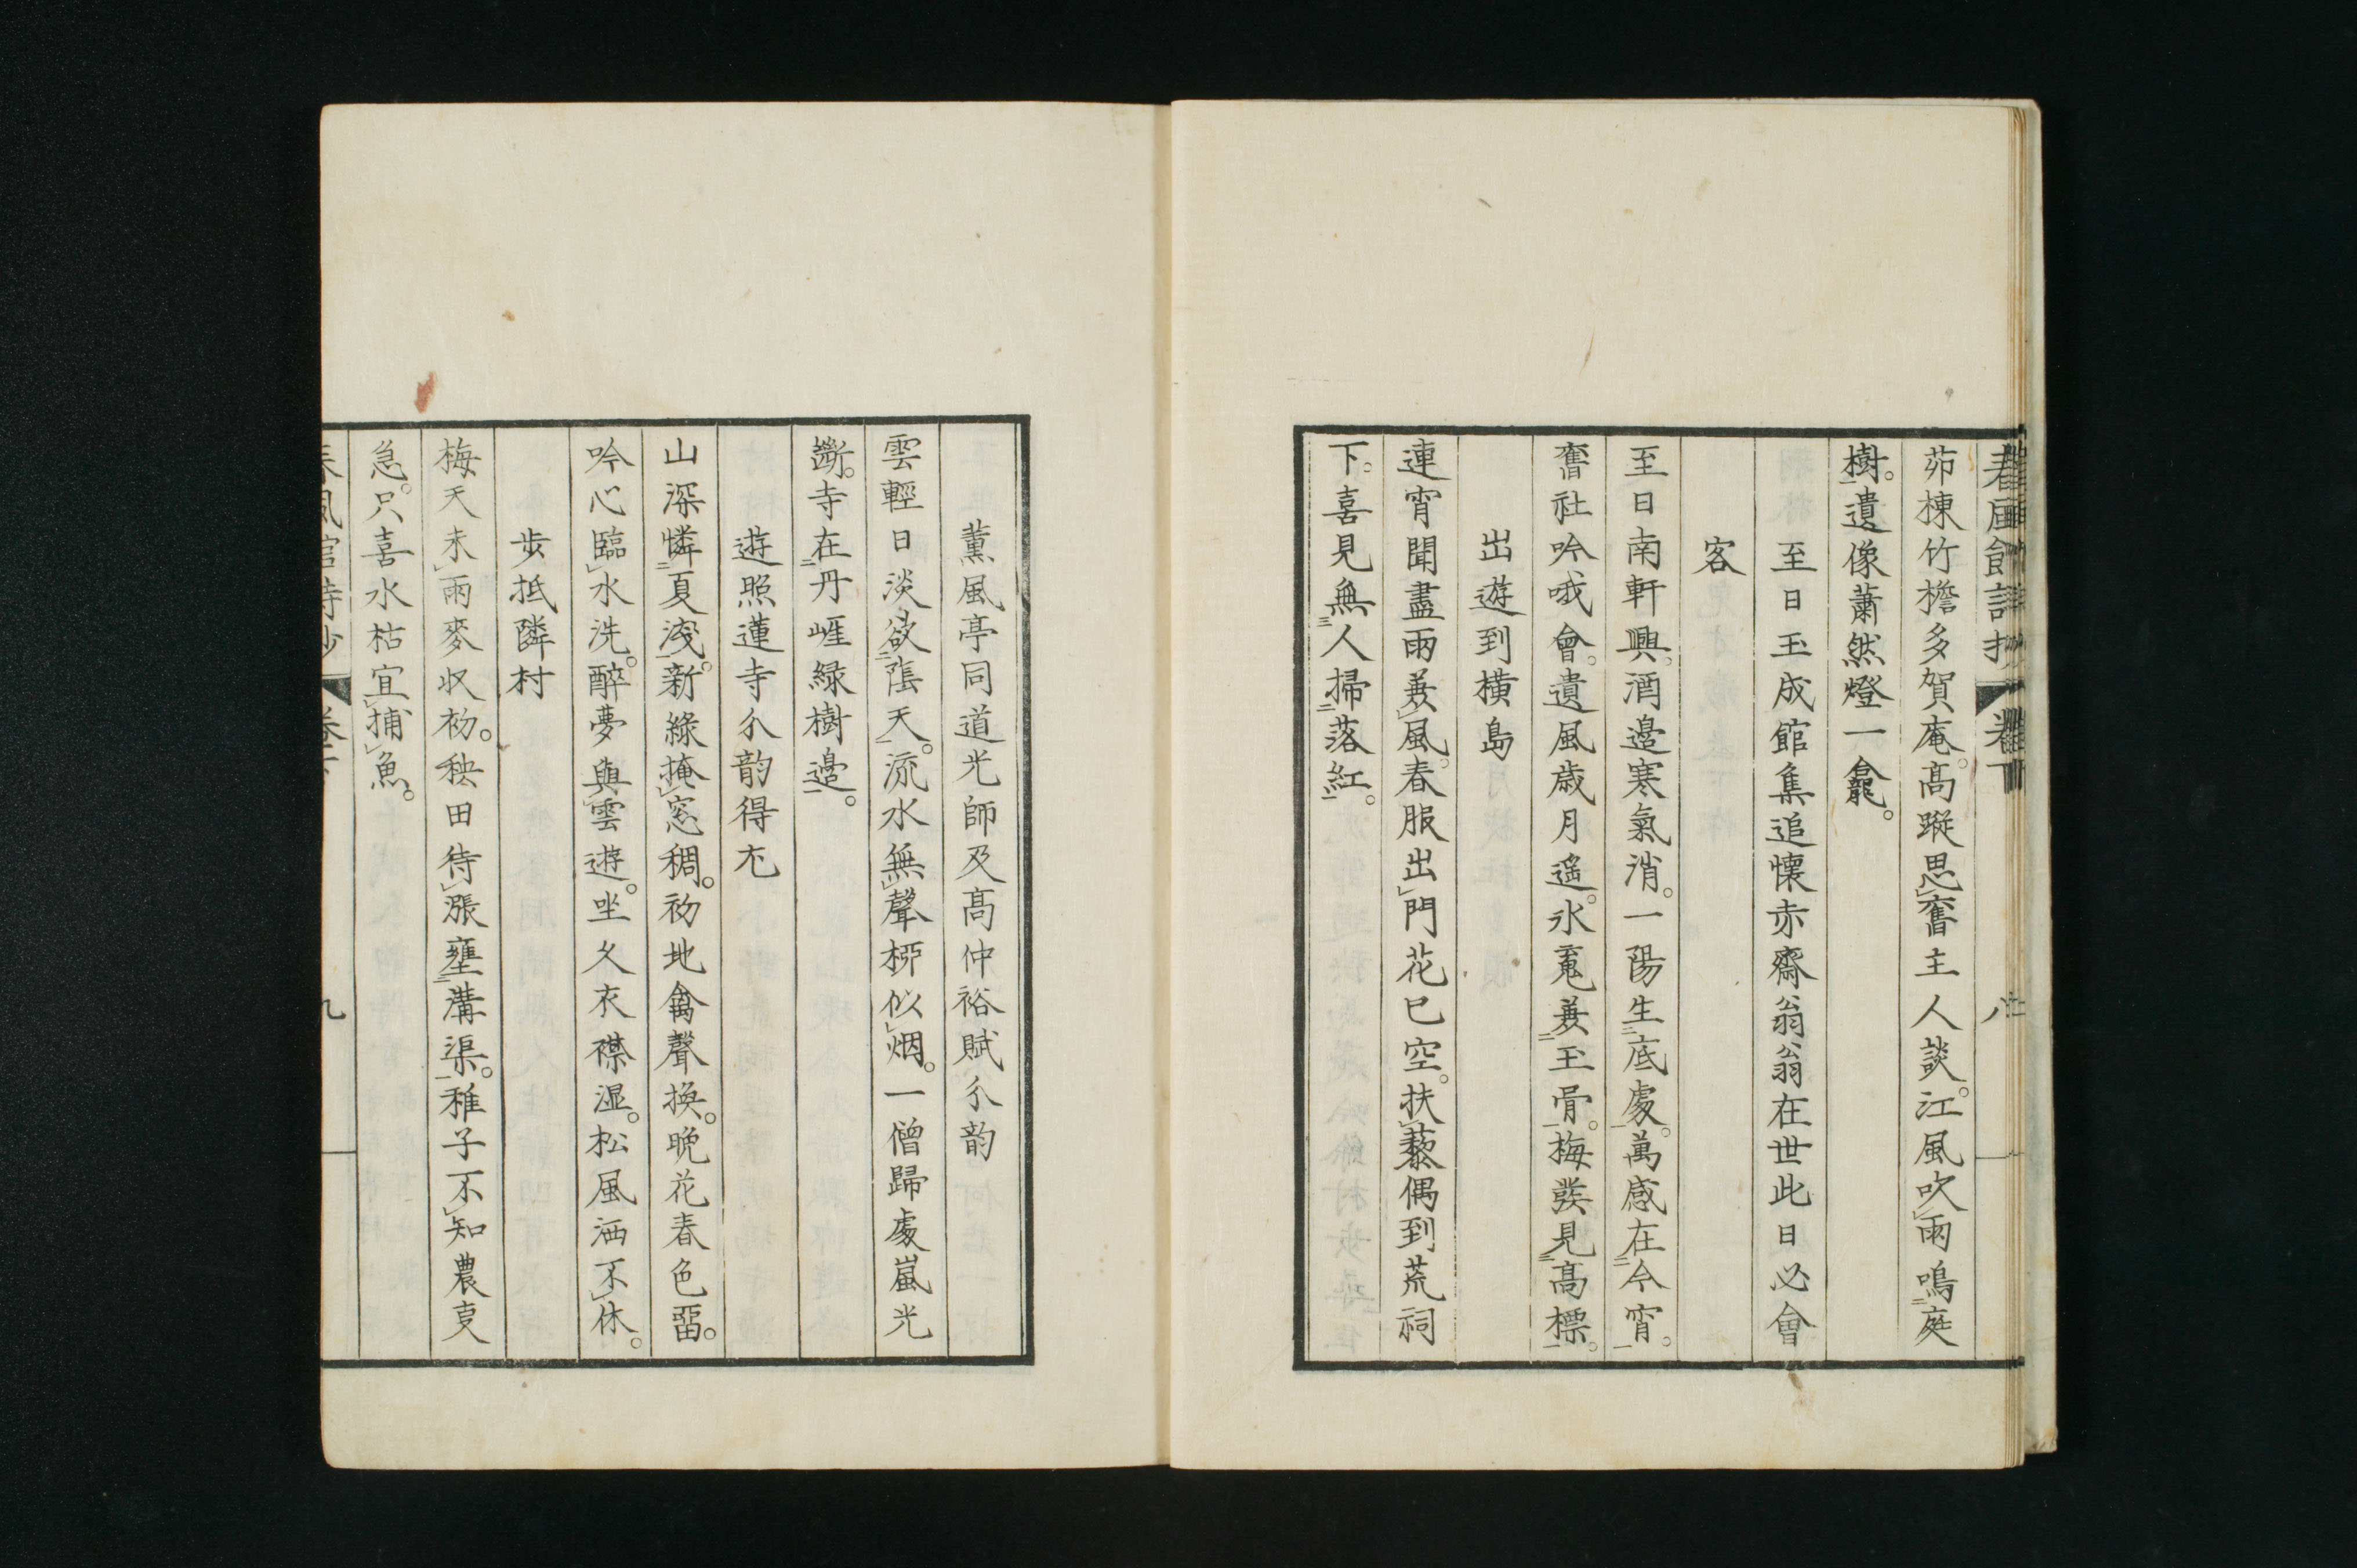 春風館詩抄 卷下 八
茆棟竹檐多賀庵。高蹤思舊主人談。江風吹雨鳴庭
樹。遺像蕭然燈一龕。
至日玉成館集追懷赤齋翁翁在世此日必會
客
至日南軒興。酒邊寒氣消。一陽生底處。萬感在今宵。
舊社吟哦會。遺風歲月遙。氷䰟兼玉骨。梅發見高標。
出遊到横島
連宵聞盡雨兼風。春服出門花已空。扶藜偶到荒祠
下。喜見無人掃落紅。
薰風亭同道光師及高仲裕賦分韵
雲輕日淡欲蔭天。流水無聲桺似烟。一僧歸處嵐光
斷。寺在丹崕綠樹邊。
遊照蓮寺分韵得尢
山深憐夏淺。新綠掩窓稠。初地禽聲換。晚花春色畱。
吟心臨水洗。醉夢與雲遊。坐久衣襟湿。松風洒不休。
步抵隣村
梅天未雨麥収初。秧田待漲壅溝渠。稚子不知農叓
急。只喜水枯宜捕魚。
春風館詩抄 卷下 九